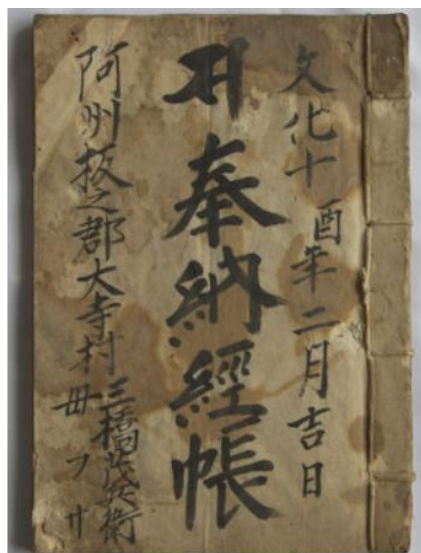 文化十酉年二月吉日
奉納經帳
阿州板之郡大寺村
三橋茂兵衛